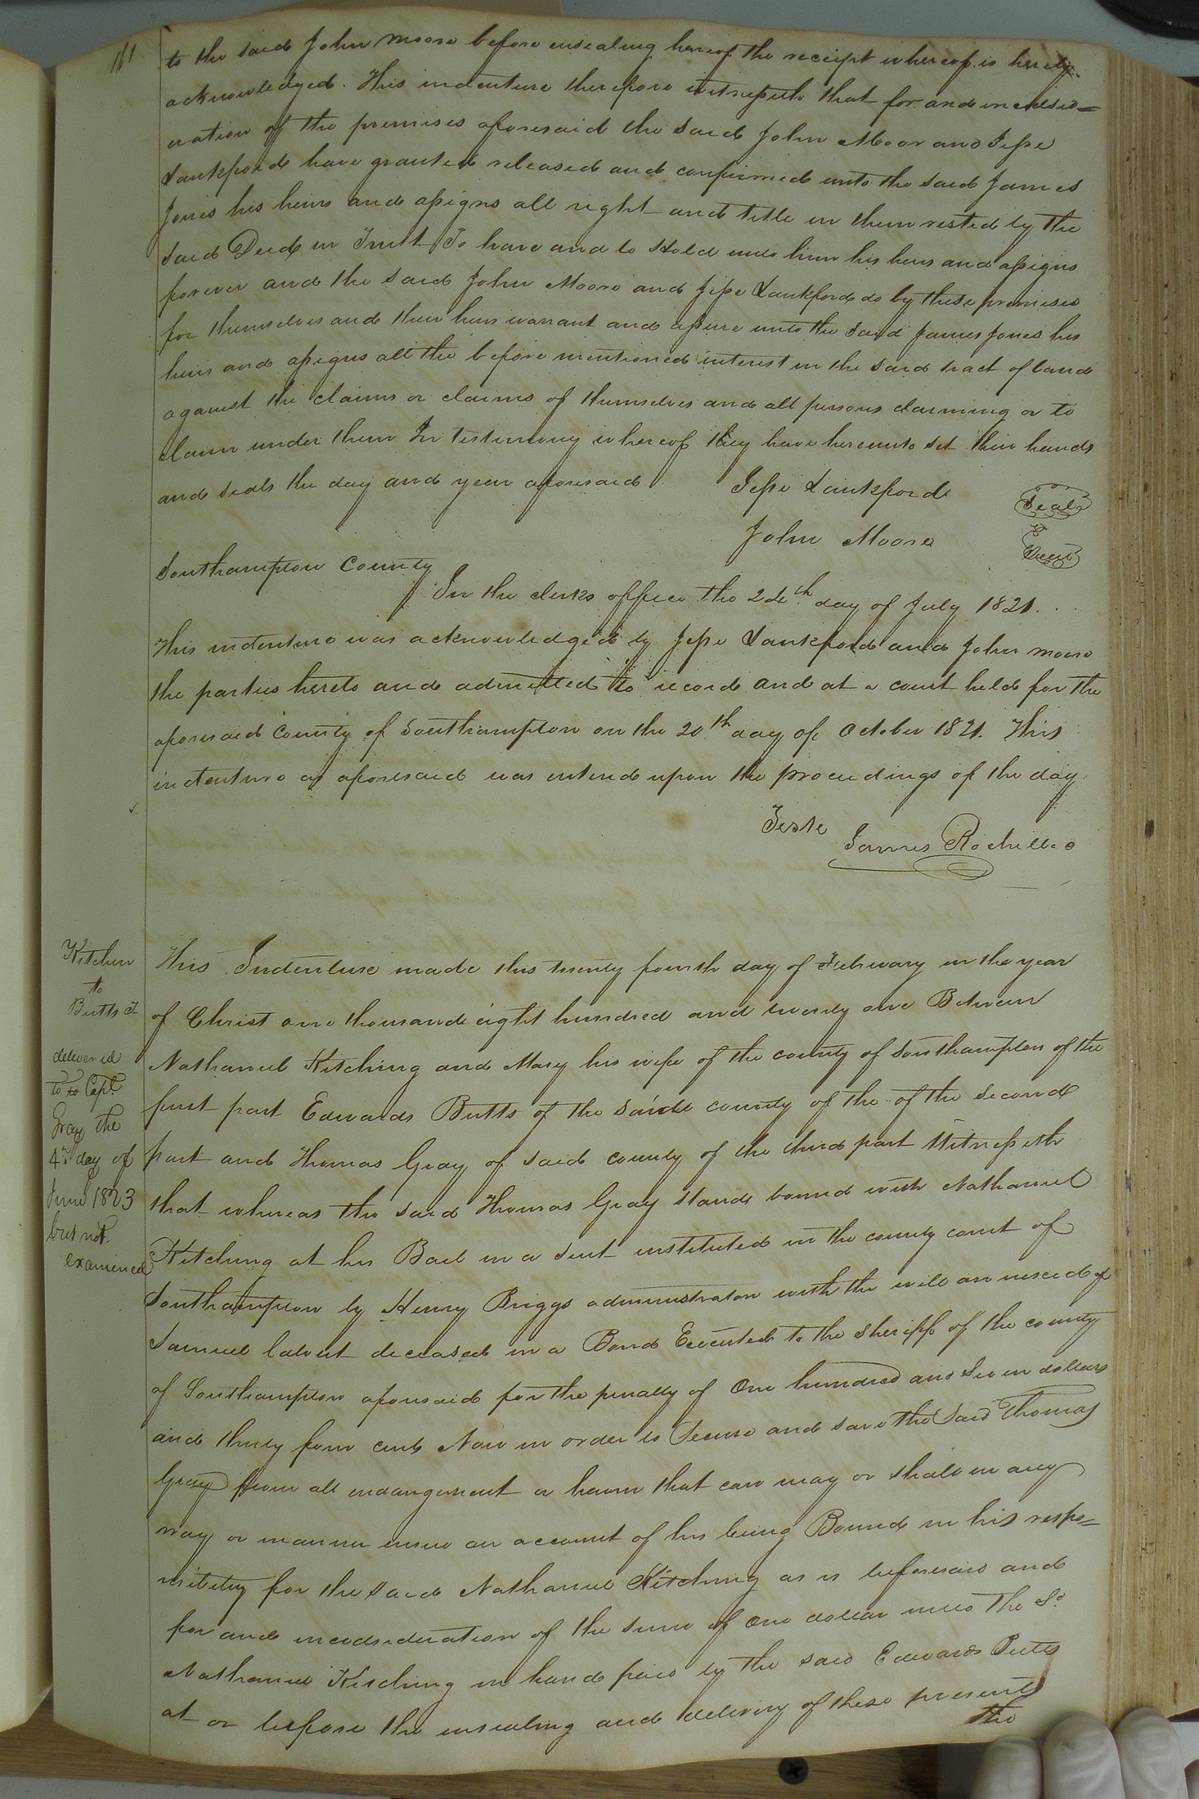 161
to the said John Moore before ensealing hereof the receipt whereof is hereby
acknowledged. This indenture therefore witnesseth that for and in conside=
ration of the premises aforesaid the said John Moor and Jesse
Lankford have granted released and confirmed unto the said James
Jones his heirs and assigns all right and title in them vested by the
said Deed in Trust To have and to Hold unto him his heirs and assigns
forever and the said John Moore and Jesse Lankford do by these premises
for themselves and their heirs warrant and assure unto the said James Jones his
heirs and assigns all the before mentioned interest in the said tract of land
against the claims or claims of themselves and all persons claiming or to
claim under them In testimony whereof they have hereunto set their hands
and seals the day and year aforesaid
Jesse Lankford Seal
John Moore Seal
Southampton County
In the clerks office the 24th day of July 1821.
This indenture was acknowledged by Jesse Lankford and John Moore
the parties hereto and admitted to record and at a court held for the
aforesaid County of Southampton on the 20th day of October 1821. This
indenture as aforesaid was entered upon the proceedings of the day
Teste
James Rochelle
Kitchen
to
Butts
delivered
to to Capt
Gray the
4th day of
June 1823
but not
examined
This Indenture made this twenty fourth day of February in the year
of Christ one thousand eight hundred and twenty one Between
Nathaniel Kitching and Mary his wife of the county of Southampton of the
first part Edwards Butts of the said county of the of the second
part and Thomas Gray of said county of the third part Witnesseth
that whereas the said Thomas Gray stands bound with Nathaniel
Kitching at his Bail in a suit instituted in the county court of
Southampton by Henry Briggs administrator with the will annexed of
Samuel Calvert deceased in a Bond Executed to the sheriff of the county
of Southampton aforesaid for the penalty of One hundred and Seven dollars
and thirty four cents Now in order to Secure and save the said Thomas
Gray from all endangerment or harm that can may or shall in any
way or manner ensue on account of his being Bound in his respo=
nsibility for the said Nathaniel Kitching as is beforesaid and
for and in consideration of the sum of one dollar unto the Sd
Nathaniel Kitching in hand paid by the said Edwards Butts
at or before the ensealing and delivery of these presents
the